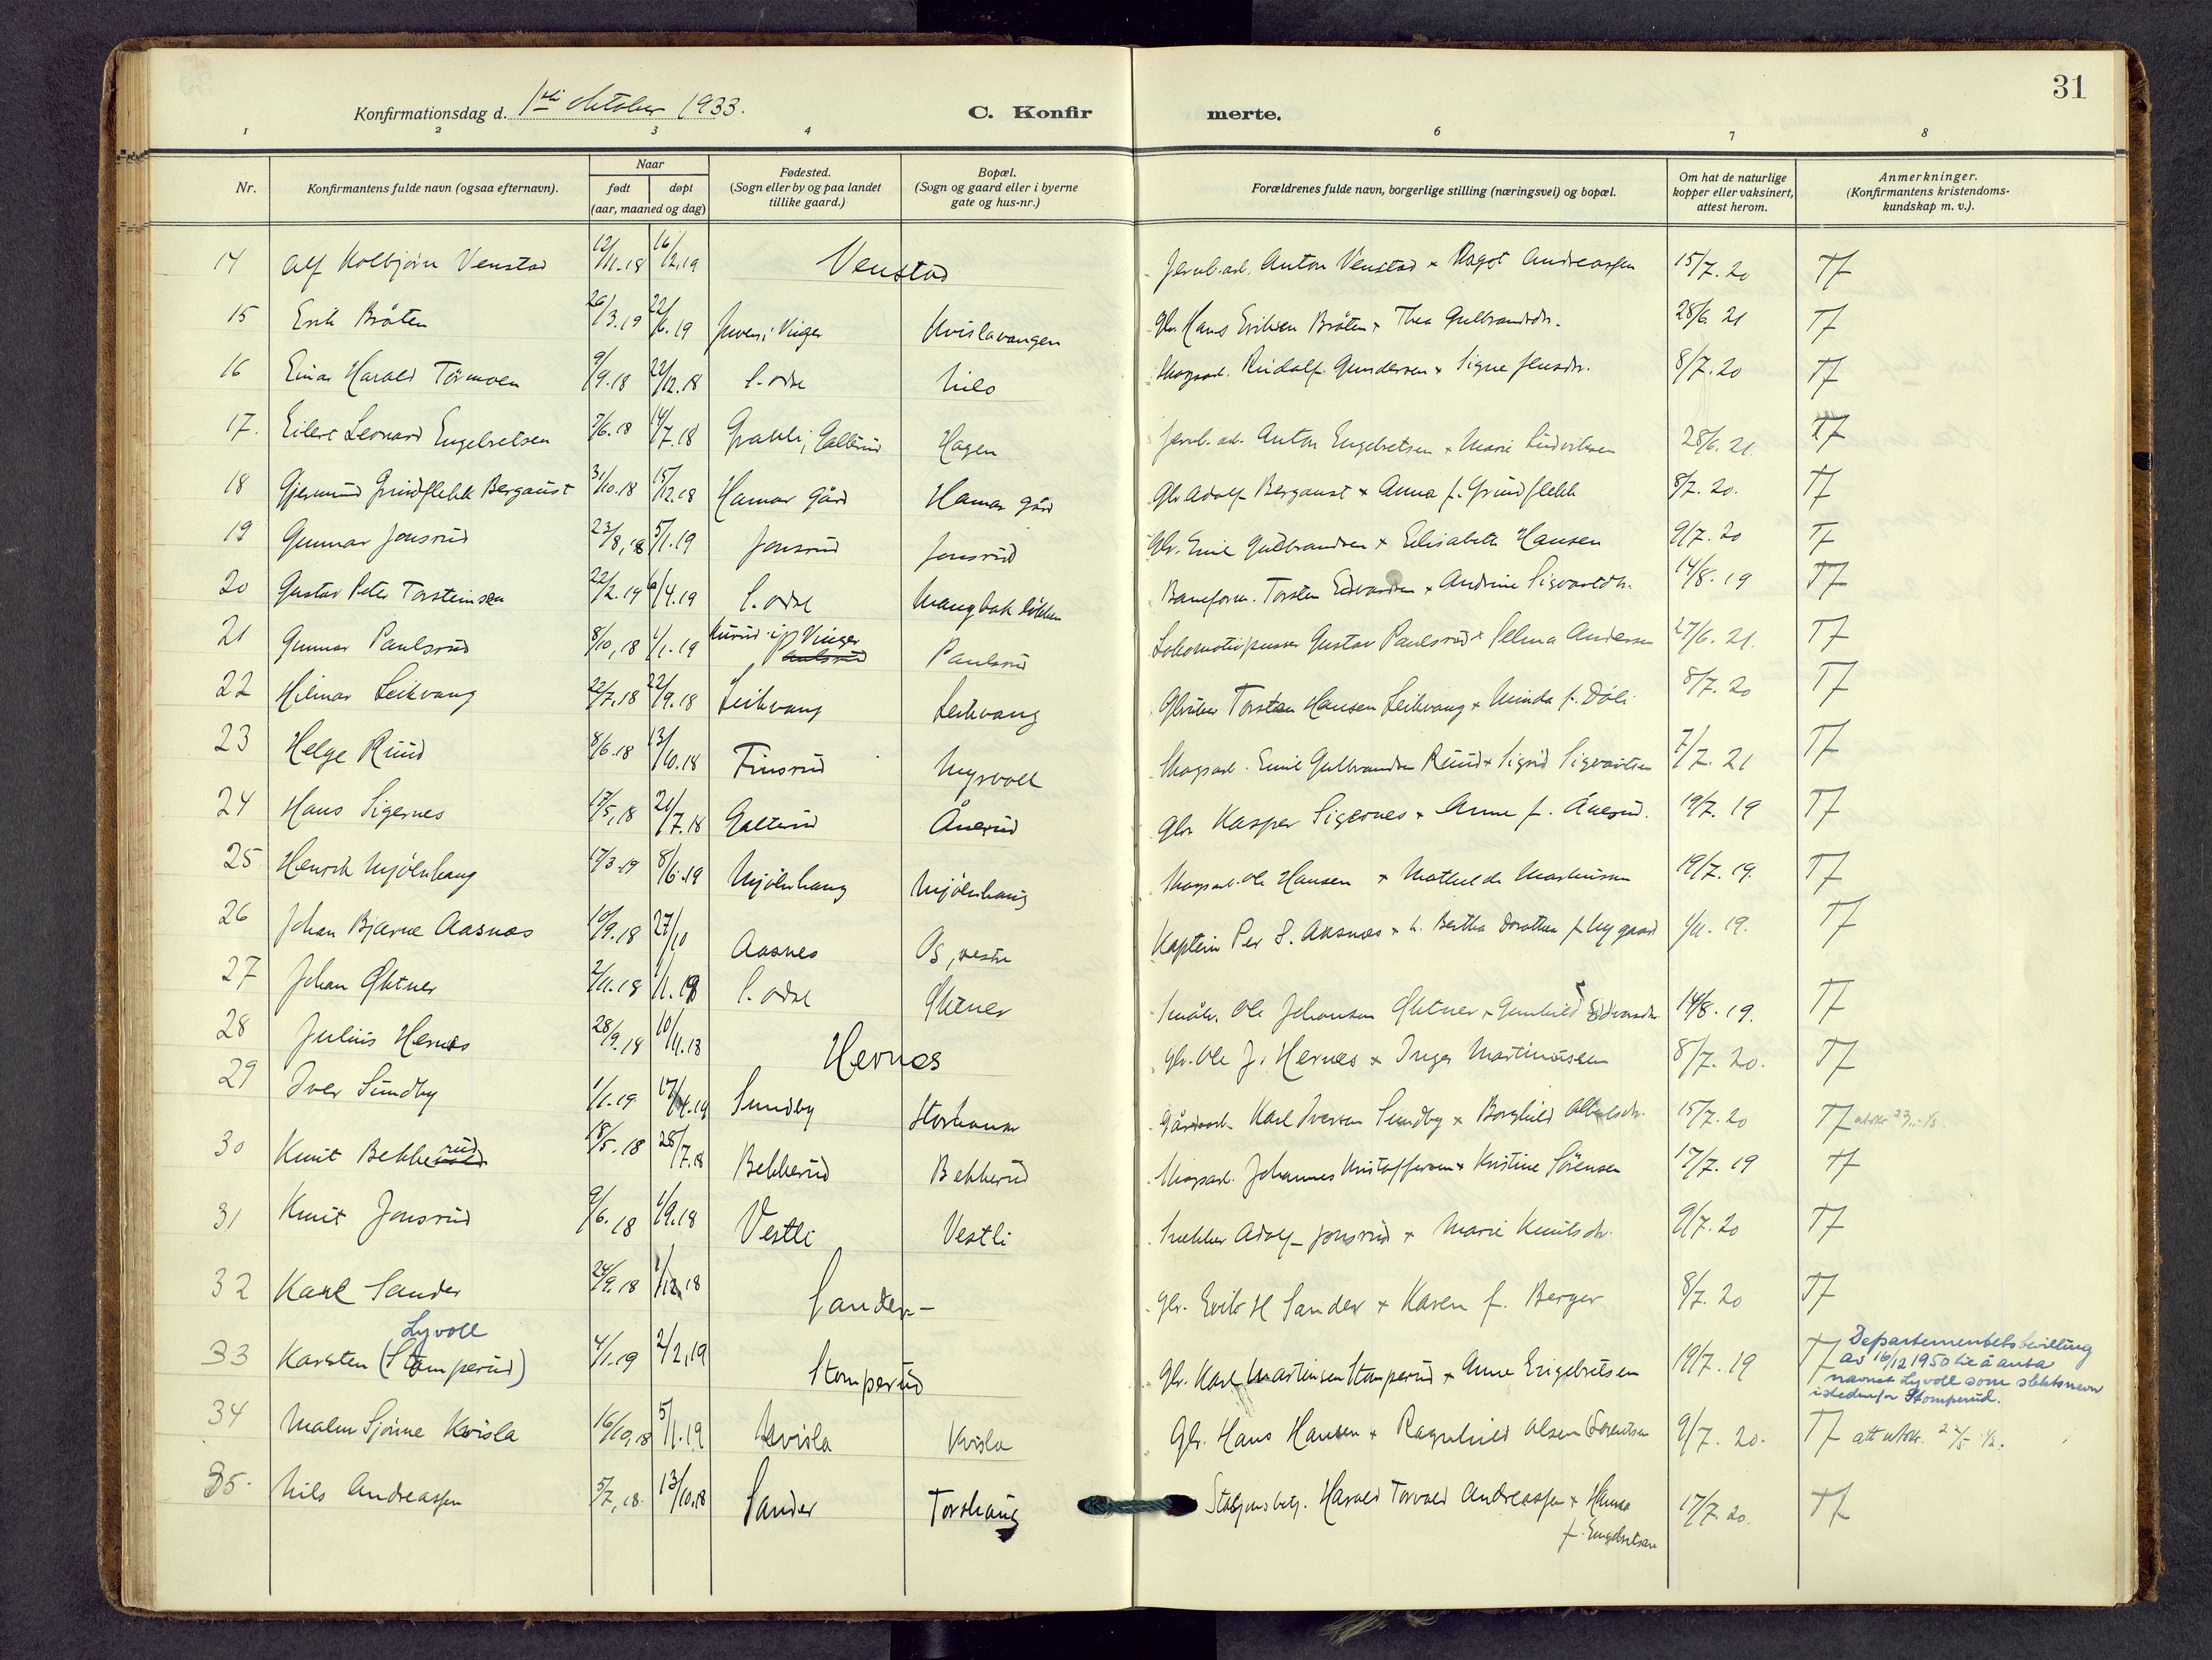 31
Konfirmationsdag d. 1ste oktober 1933.
C. Konfir merte.
1 2 3 4 6 7 8
Nr.
Konfirmantens fulde navn (ogsaa efternavn).
Naar
født døpt
(aar, maaned og dag)
Fødested.
(Sogn eller by og paa landet
tillike gaard.)
Bopæl.
(Sogn og gaard eller i byerne
gate og hus-nr.)
Forældrenes fulde navn, borgerlige stilling (næringsvei) og bopæl.
Om hat de naturlige
kopper eller vaksinert,
attest herom.
Anmerkninger.
(Konfirmantens kristendoms-
kundskap m. v.).
14 Alf Kolbjørn Venstad 12/11.18 16/2.19 Venstad Jernb.arb. Anton Venstad × Dagot Andreassen 15/7.20 Tf
15 Erik Bråten 26/3.19 22/6.19 Vinger Kvislavangen Gbr. Hans Eriksen Bråten × Thea Gulbrandsdr. 28/6.21 Tf
16 Einar Harald Tørmoen 9/9.18 22/12.18 S. Odal Milo Skogsarb. Rudolf Gundersen × Signe Jensdr. 8/7.20 Tf
17. Eilert Leonard Engebretsen 7/6.18 14/7.18 Galterud Hagen Jernb. arb. Anton Engebretsen × Marie Ludviksen 28/6.21. Tf
18 Gjermund Grindflekk Bergaust 31/10.18 15/12.18 Hamar gård Hamar gård Gbr. Adolf Bergaust × Anna f. Grindflekk 8/7.20. Tf
19 Gunnar Jonsrud 23/8,18 5/1.19 Jonsrud Jonsrud Gbr. Emil Gulbrandsen × Elisabeth Hansen 9/7.20 Tf
20 Gustav Peter Torsteinsen 22/2.19 6/4.19 S. Odal Mangbakløkken Baneform. Torsten Edvardsen × Andrine Sigvartdr. 14/8.19 Tf
21 Gunnar Paulsrud 8/10,18 1/1.19 i Vinger Paulsrud Paulsrud Lokomotivpusser Gustav Paulsrud × Selma Andersen 27/6.21. Tf
22 Hilmar Leikvang 22/7.18 22/9.18 Leikvang Leikvang Gbruker Torsten Hansen Leikvang × Minda f. Døli 8/7.20 Tf
23 Helge Ruud 8/6.18 13/10.18 Finsrud Myrvoll Skogsarb. Emil Gulbrandsen Ruud × Sigrid Sigvartsen 7/7.21 Tf
24 Hans Sigernes 17/5,18 21/7.18 Galterud Ånerud Gbr Kasper Sigernes × Anne f. Ånerud. 19/7.19 Tf
25. Henrik Mjølnhaug 17/3-19 8/6.19 Mjølnhaug Mjølnhaug Skogsarb. Ole Hansen × Mathilde Mathisen 19/7.19. Tf
26 Johan Bjarne Aasnæs 10/9.18 27/10 Aasnes Os, vestre Kaptein Per S. Aasnæs × h. Bertha Dorothea f. Nygaard 1/11.19. Tf
27 Johan Øktner 2/11.18 1/1.19 S. Odal Øktner Småbr. Ole Johansen Øktner × Gunhild 14/8.19. Tf
28 Julius Hernes 28/9.18 10/11.18 Hernes Gbr. Ole J. Hernes × Inga Martinusen 8/7.20. Tf
29 Iver Sundby 1/1.19 17/4.19 Sundby Storhaun Gårdsarb. Karl Iversen Sundby × Borghild Albertsdr. 15/7.20 Tf
30 Knut Bekkerud 18/5.18 28/7.18 Bekkerud Bekkerud Skogsarb. Johannes Kristoffersen × Kristine Sørensen 17/7.19 Tf
31 Knut Jonsrud 9/6.18 1/9.18 Vestli Vestli Snekker Adolf Jonsrud × Marie Knutsdr. 9/7.20 Tf
32 Karl Sander 24/9.18 1/12.18 Sander- Gbr. Erik H Sander × Karen f. Berger 8/7.20 Tf
Lyvoll
33 Karsten (Stomperud) 4/1.19 2/2,19 Stomperud Gbr. Karl Martinsen Stomperud × Anne Engebretsen 19/7.19 Tf Departementets bevilling
av 16/12 1950 til å anta
navnet Lyvoll som slektsnavn
istedenfor Stomperud.
34 Malm Sjønne Kvisla 16/10,18 5/1.19 Kvisla Kvisla Gbr. Hans Hansen × Ragnhild Olsen (Lorentsen 9/7.20. Tf
35. Nils Andreassen 5/7,18. 13/10.18 Sander Torshaug Stasjonsbetj. Harald Torvald Andreassen × Hanna 17/7.20. Tf
f. Engebretsen